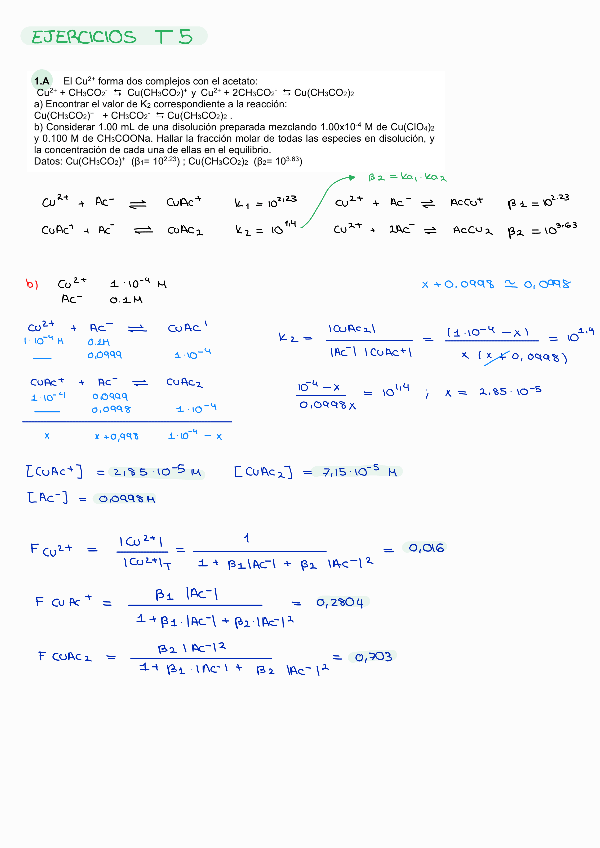 EJERCICIOS T5
1.A El Cu²⁺ forma dos complejos con el acetato:
Cu²⁺ + CH₃CO₂⁻ ⇆ Cu(CH₃CO₂)⁺ y Cu²⁺ + 2CH₃CO₂⁻ ⇆ Cu(CH₃CO₂)₂
a) Encontrar el valor de K₂ correspondiente a la reacción:
Cu(CH₃CO₂)⁺ + CH₃CO₂⁻ ⇆ Cu(CH₃CO₂)₂ .
b) Considerar 1.00 mL de una disolución preparada mezclando 1.00x10⁻⁴ M de Cu(ClO₄)₂
y 0.100 M de CH₃COONa. Hallar la fracción molar de todas las especies en disolución, y
la concentración de cada una de ellas en el equilibrio.
Datos: Cu(CH₃CO₂)⁺ (β₁= 10²·²³) ; Cu(CH₃CO₂)₂ (β₂= 10³·⁶³)
β₂ = Ka₁ · Ka₂
Cu²⁺ + Ac⁻ ⇌ CuAc⁺ K₁ = 10^2,23 Cu²⁺ + Ac⁻ ⇌ AcCu⁺ β₁ = 10^2.23
CuAc⁺ + Ac⁻ ⇌ CuAc₂ K₂ = 10^1,4 Cu²⁺ + 2Ac⁻ ⇌ AcCu₂ β₂ = 10^3.63
b) Cu²⁺ 1·10⁻⁴ M
Ac⁻ 0.1 M
x + 0.0998 ≃ 0,0998
Cu²⁺ + Ac⁻ ⇌ CuAc⁺
1·10⁻⁴ M 0.1M
— 0,0999 1·10⁻⁴
CuAc⁺ + Ac⁻ ⇌ CuAc₂
1·10⁻⁴ 0,0999
— 0,0998 1·10⁻⁴
x x+0,998 1·10⁻⁴ - x
K₂ = |CuAc₂| / |Ac⁻| |CuAc⁺| = (1·10⁻⁴ - x) / x (x + 0,0998) = 10^1,4
10⁻⁴ - x / 0,0998x = 10^1,4 ; x = 2,85·10⁻⁵
[CuAc⁺] = 2,85·10⁻⁵ M [CuAc₂] = 7,15·10⁻⁵ M
[Ac⁻] = 0,0998M
F Cu²⁺ = |Cu²⁺| / |Cu²⁺|T = 1 / 1 + β₁|Ac⁻| + β₂ |Ac⁻|² = 0,016
F CuAc⁺ = β₁ |Ac⁻| / 1 + β₁·|Ac⁻| + β₂·|Ac⁻|² = 0,2804
F CuAc₂ = β₂ |Ac⁻|² / 1 + β₁·|Ac⁻| + β₂ |Ac⁻|² = 0,703